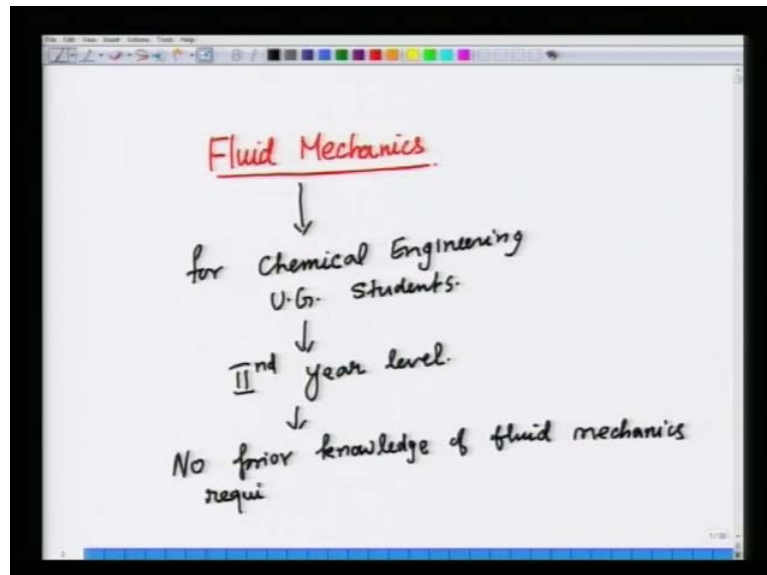 File Edit View Insert Actions Tools Help
Fluid Mechanics
for Chemical Engineering
U.G. Students.
IInd year level.
No prior knowledge of fluid mechanics
requi
1/20